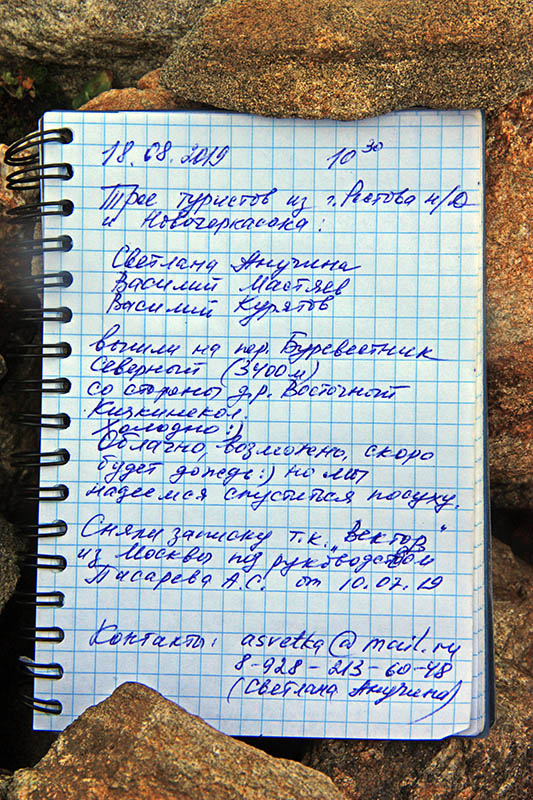 18.08.2019 10 30
Трое туристов из г. Ростова н/Д
и Новочеркасска:
Светлана Анучина
Василий Мастяев
Василий Курятов
вышли на пер. Буревестник
Северный (3400м)
со стороны д.р. Восточный
Кизкинекол.
Холодно :)
Облачно, возможно, скоро
будет дождь :) но мы
надеемся спуститься посуху.
Сняли записку т.к. "Вектор"
из Москвы под руководством
Писарева А.С. от 10.07.19
Контакты: asvetka@mail.ru
8-928-213-60-48
(Светлана Анучина)